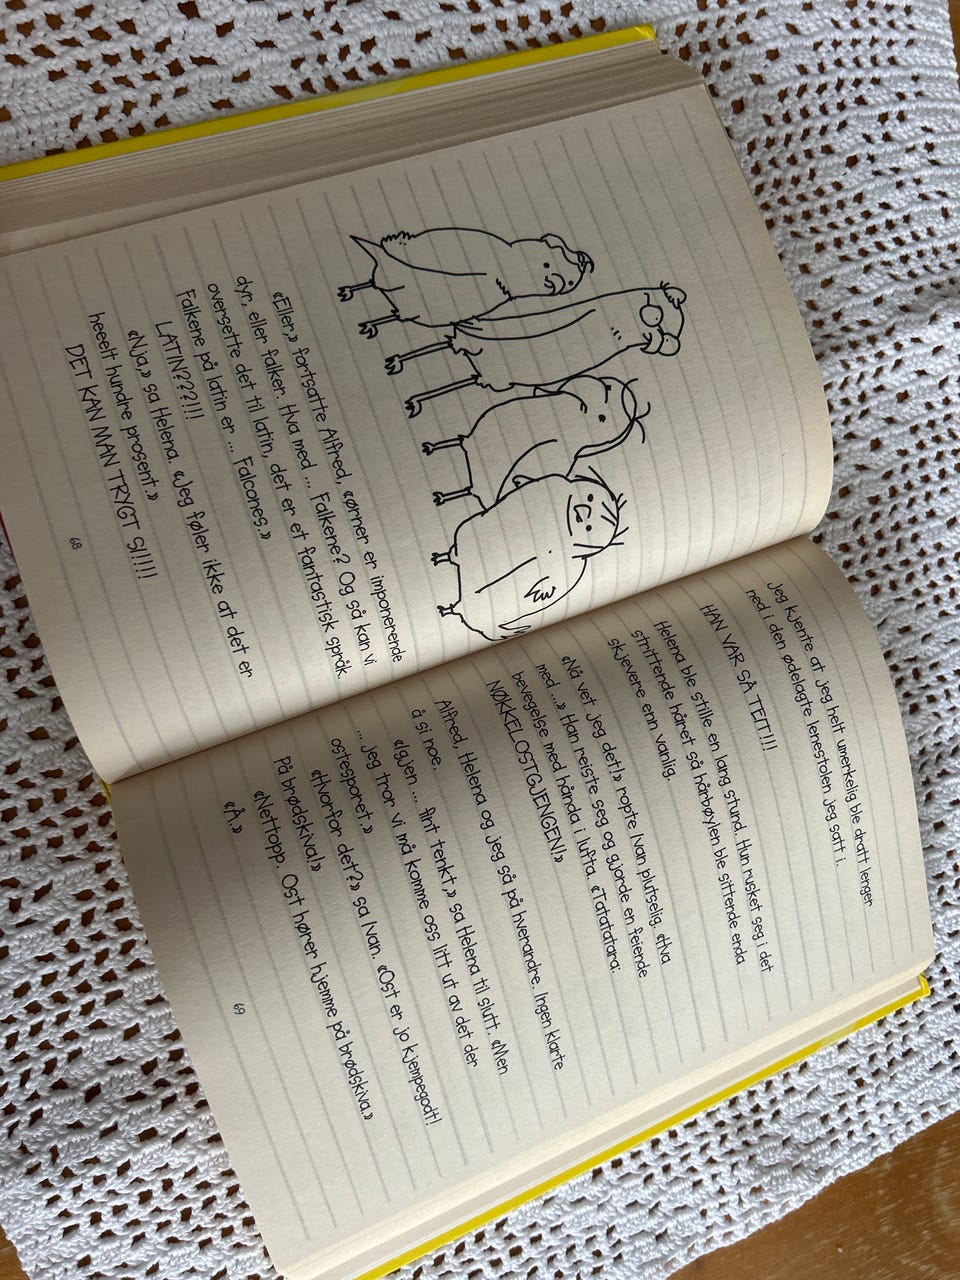 «Eller,» fortsatte Alfred, «ørner er imponerende
dyr, eller falker. Hva med ... Falkene? Og så kan vi
oversette det til latin, det er et fantastisk språk.
Falkene på latin er ... Falcones.»
LATIN???!!!
«Nja,» sa Helena. «Jeg føler ikke at det er
heeelt hundre prosent.»
DET KAN MAN TRYGT SI!!!!!
68
Jeg kjente at jeg helt umerkelig ble dratt lenger
ned i den ødelagte lenestolen jeg satt i.
HAN VAR SÅ TEIT!!!
Helena ble stille en lang stund. Hun rusket seg i det
strittende håret så hårbøylen ble sittende enda
skjevere enn vanlig.
«Nå vet jeg det!» ropte Ivan plutselig. «Hva
med ...» Han reiste seg og gjorde en feiende
bevegelse med hånda i lufta. «Tatatatara:
NØKKELOSTGJENGEN!»
Alfred, Helena og jeg så på hverandre. Ingen klarte
å si noe.
«Igjen ... fint tenkt,» sa Helena til slutt. «Men
... jeg tror vi må komme oss litt ut av det der
ostesporet.»
«Hvorfor det?» sa Ivan. «Ost er jo kjempegodt!
På brødskiva!»
«Nettopp. Ost hører hjemme på brødskiva.»
«Å.»
69